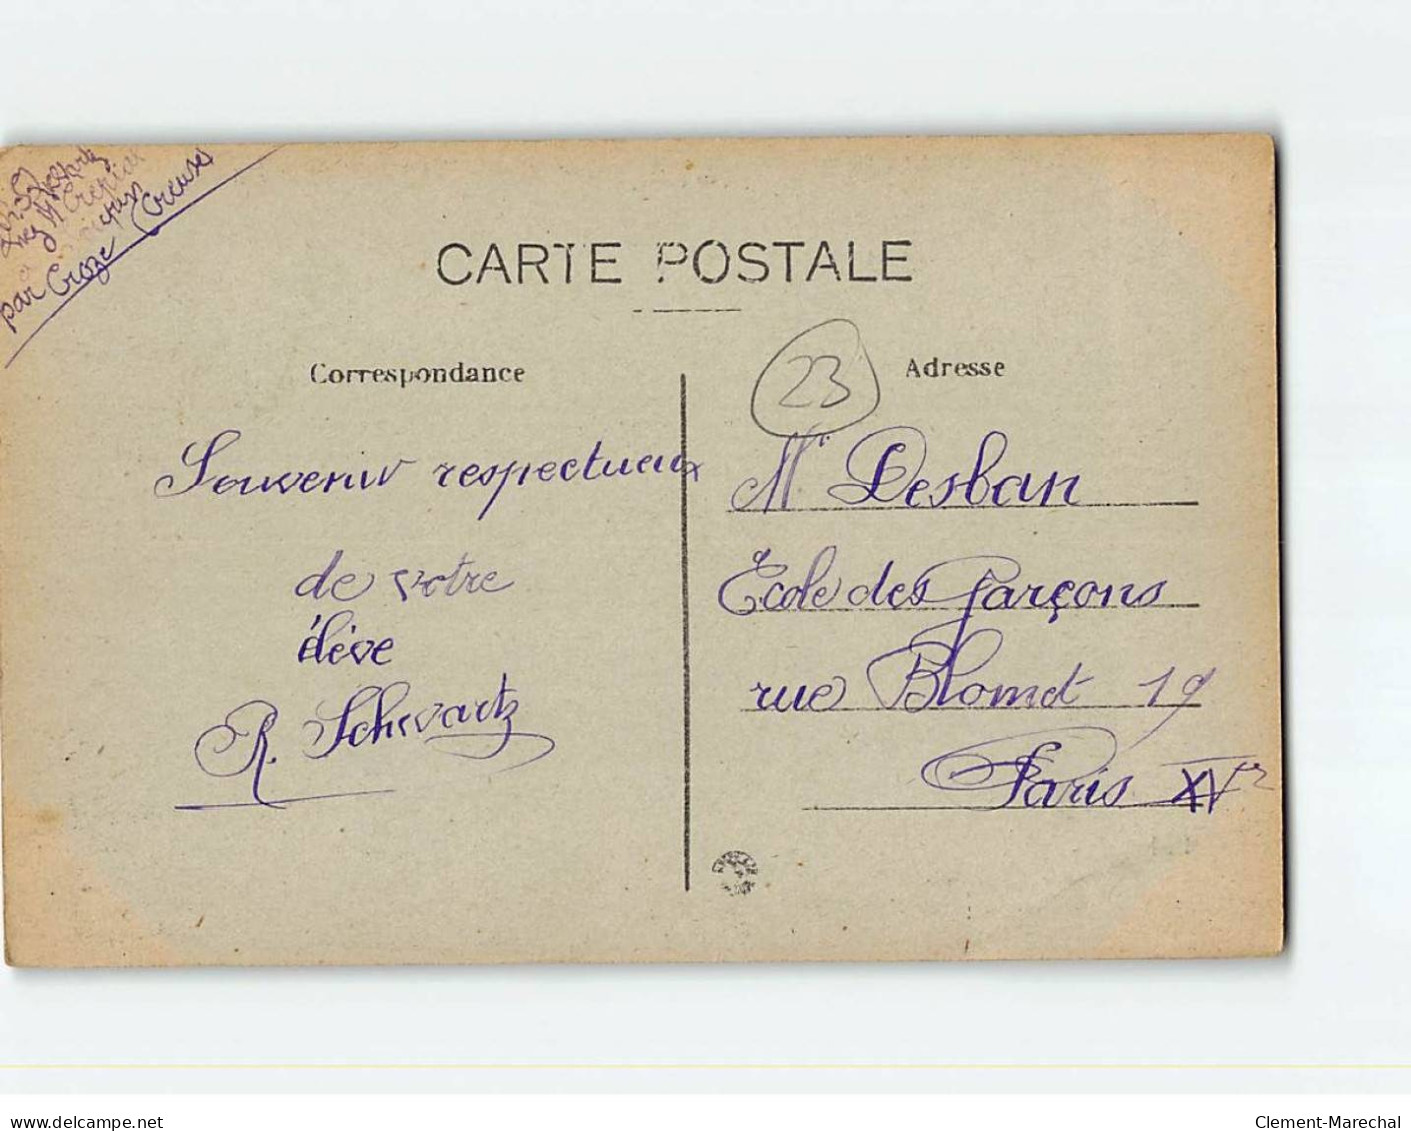 chez M
par Croze (Creuse)
CARTE POSTALE
Correspondance
Adresse
23
Souvenir respectueux
de votre
élève
R. Schwartz
Mr Desban
École des Garçons
rue Blomet 19
Paris XVe
www.delcampe.net
Clement-Marechal